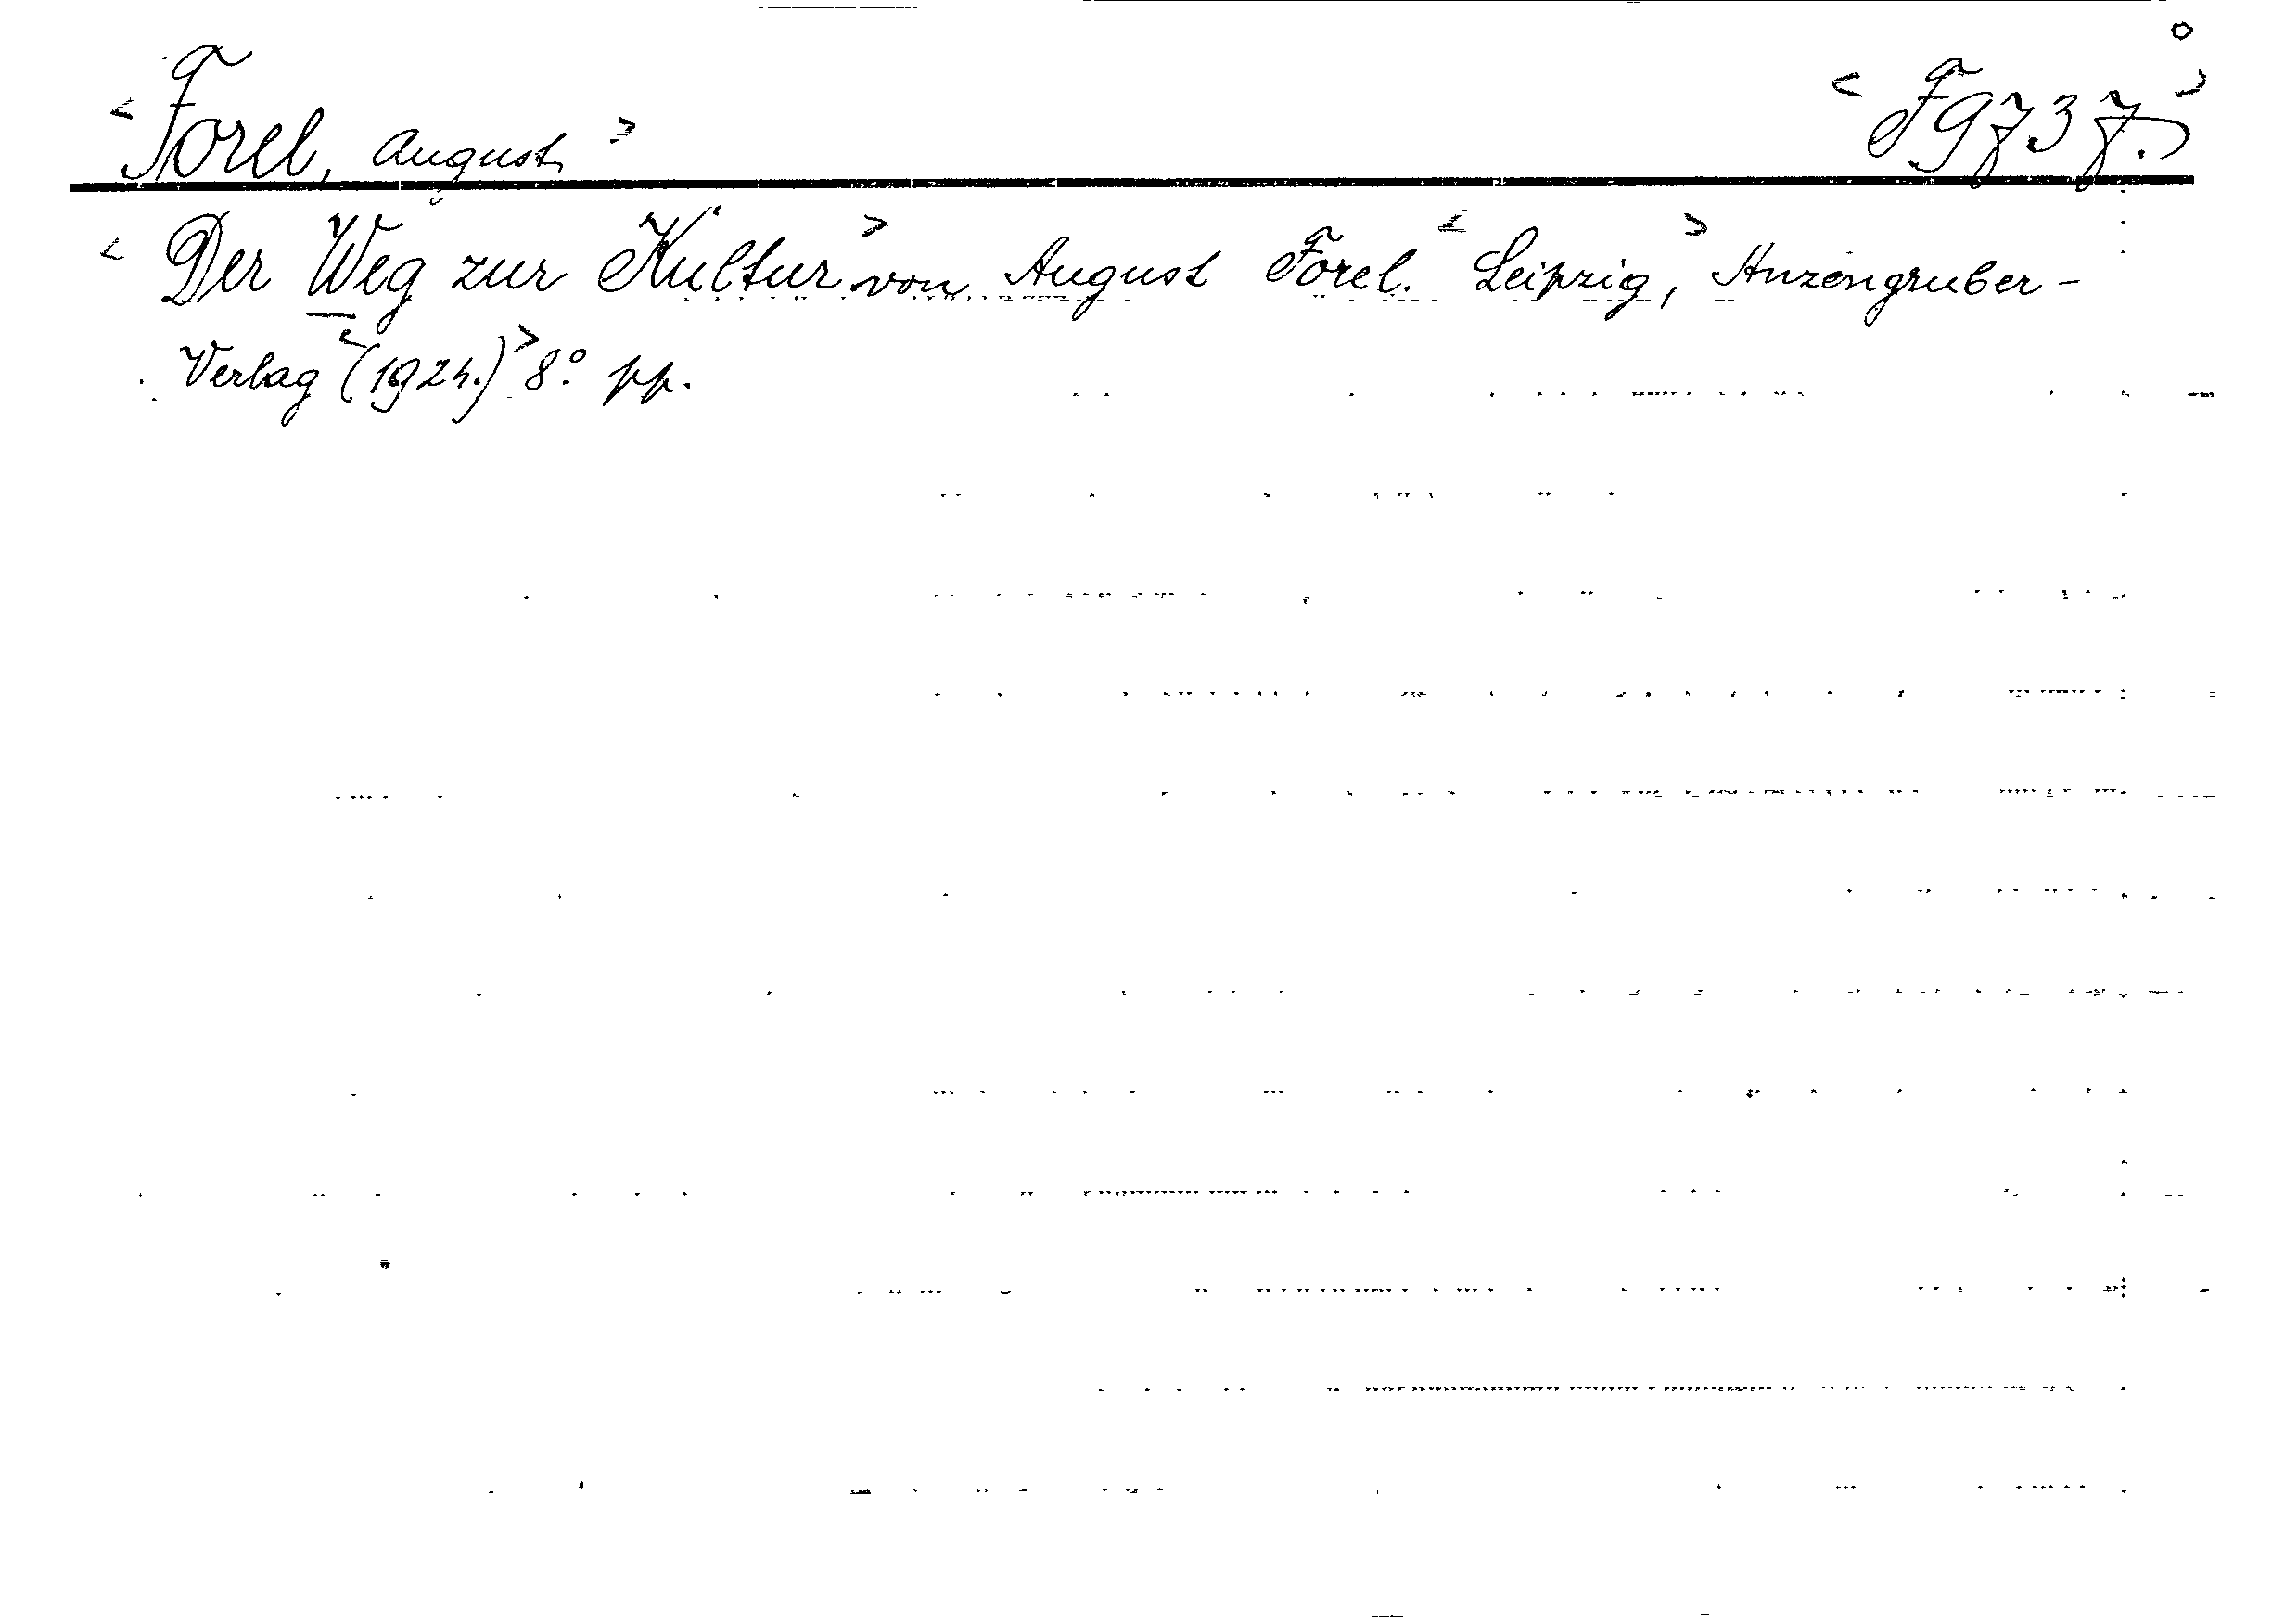 < Forel, August > < F9737. >
< Der Weg zur Kultur > von August Forel. < Leipzig, > Anzengruber-
Verlag < (1924.) > 8° pp.